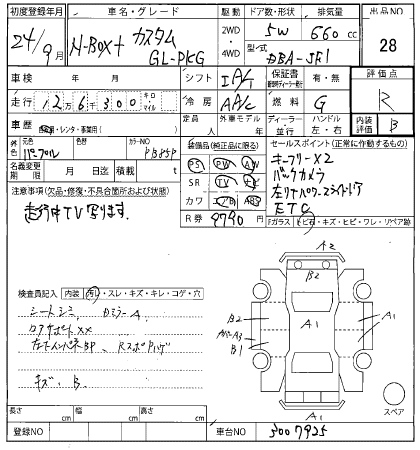 初度登録年月 車名・グレード 駆動 ドア数・形状 排気量 出品NO
24/9月 N-BOX+ カスタム GL-PKG 2WD 4WD 5W 660cc 28
型式 DBA-JF1
車検 年 月 シフト IAT 保証書 有・無 評価点
走行 12万6千300 キロ マイル 冷房 AAC 燃料 G R
車歴 自家用・レンタ・事業用( ) 定員 人 外車モデル 年 ディーラー 並行 ハンドル 左・右 内装評価 B
外色 パープル 色替 カラーNO PB85P 装備品(純正品に限る) セールスポイント(正常に作動するもの)
名義変更期限 月 日迄 積載 t PS PW AW キーフリーX2
注意事項(欠品・修復・不具合箇所および状態) SR TV ナビ バックカメラ
走行中TV写ります. カワ エアB ABS 左リヤパワースライドドア
R券 9790円 ETC
Fガラス トビ石・キズ・ヒビ・ワレ・リペア跡
A2
B2
検査員記入 内装 汚レ・スレ・キズ・キレ・コゲ・穴
シートシミ、
B2
A1
A1
A3
B1
キズ、B、
A1
スペア
長さ cm 幅 cm 高さ cm
登録NO 車台NO 3007925